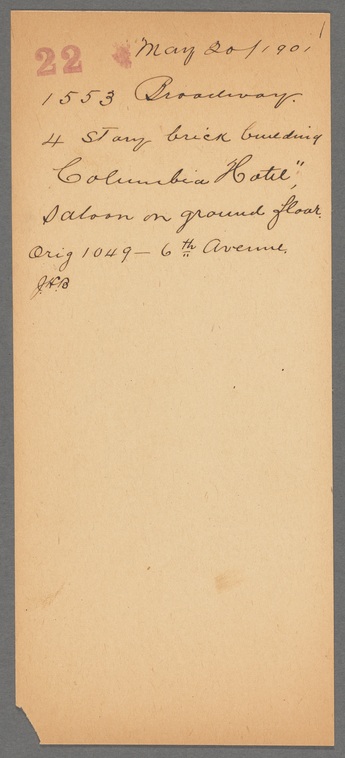 1
22 May 20/1901
1553 Broadway.
4 Story brick building
Columbia "Hotel",
Saloon on ground floor.
Orig 1049 - 6th Avenue.
J.H.B